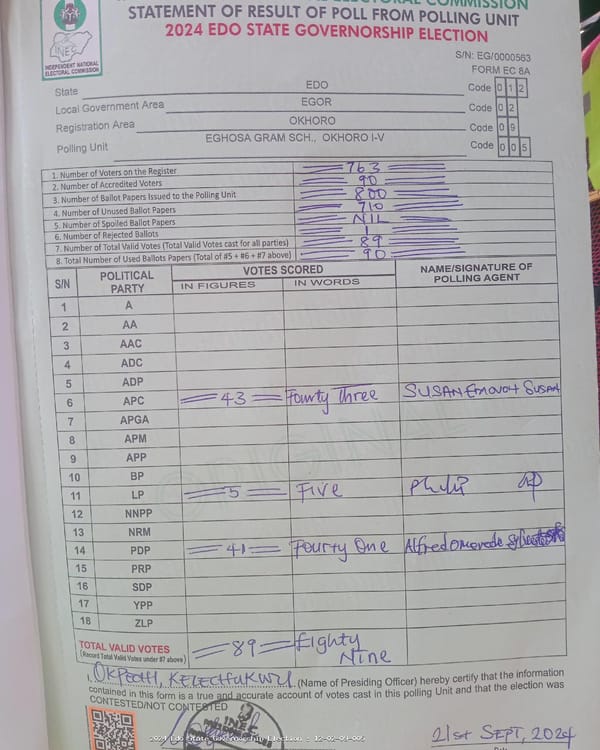 STATEMENT OF RESULT OF POLL FROM POLLING UNIT
2024 EDO STATE GOVERNORSHIP ELECTION
INEC
INDEPENDENT NATIONAL
ELECTORAL COMMISSION
S/N: EG/0000563
FORM EC 8A
State EDO Code 0 1 2
Local Government Area EGOR Code 0 2
Registration Area OKHORO Code 0 9
Polling Unit EGHOSA GRAM SCH., OKHORO I-V Code 0 0 5
1. Number of Voters on the Register 763
2. Number of Accredited Voters 90
3. Number of Ballot Papers Issued to the Polling Unit 800
4. Number of Unused Ballot Papers 710
5. Number of Spoiled Ballot Papers NIL
6. Number of Rejected Ballots 1
7. Number of Total Valid Votes (Total Valid Votes cast for all parties) 89
8. Total Number of Used Ballots Papers (Total of #5 + #6 + #7 above) 90
S/N POLITICAL PARTY VOTES SCORED NAME/SIGNATURE OF POLLING AGENT
IN FIGURES IN WORDS
1 A
2 AA
3 AAC
4 ADC
5 ADP
6 APC 43 Fourty Three SUSAN Emovon SUSAN
7 APGA
8 APM
9 APP
10 BP
11 LP 5 Five Philip
12 NNPP
13 NRM
14 PDP 41 Fourty One Alfred Omorede
15 PRP
16 SDP
17 YPP
18 ZLP
TOTAL VALID VOTES 89 Eighty Nine
(Record Total Valid Votes under #7 above)
I, OKPECHI, KELECHUKWU (Name of Presiding Officer) hereby certify that the information
contained in this form is a true and accurate account of votes cast in this polling Unit and that the election was
CONTESTED/NOT CONTESTED
21st SEPT, 2024
2024 Edo State Governorship Election - 12-02-09-005